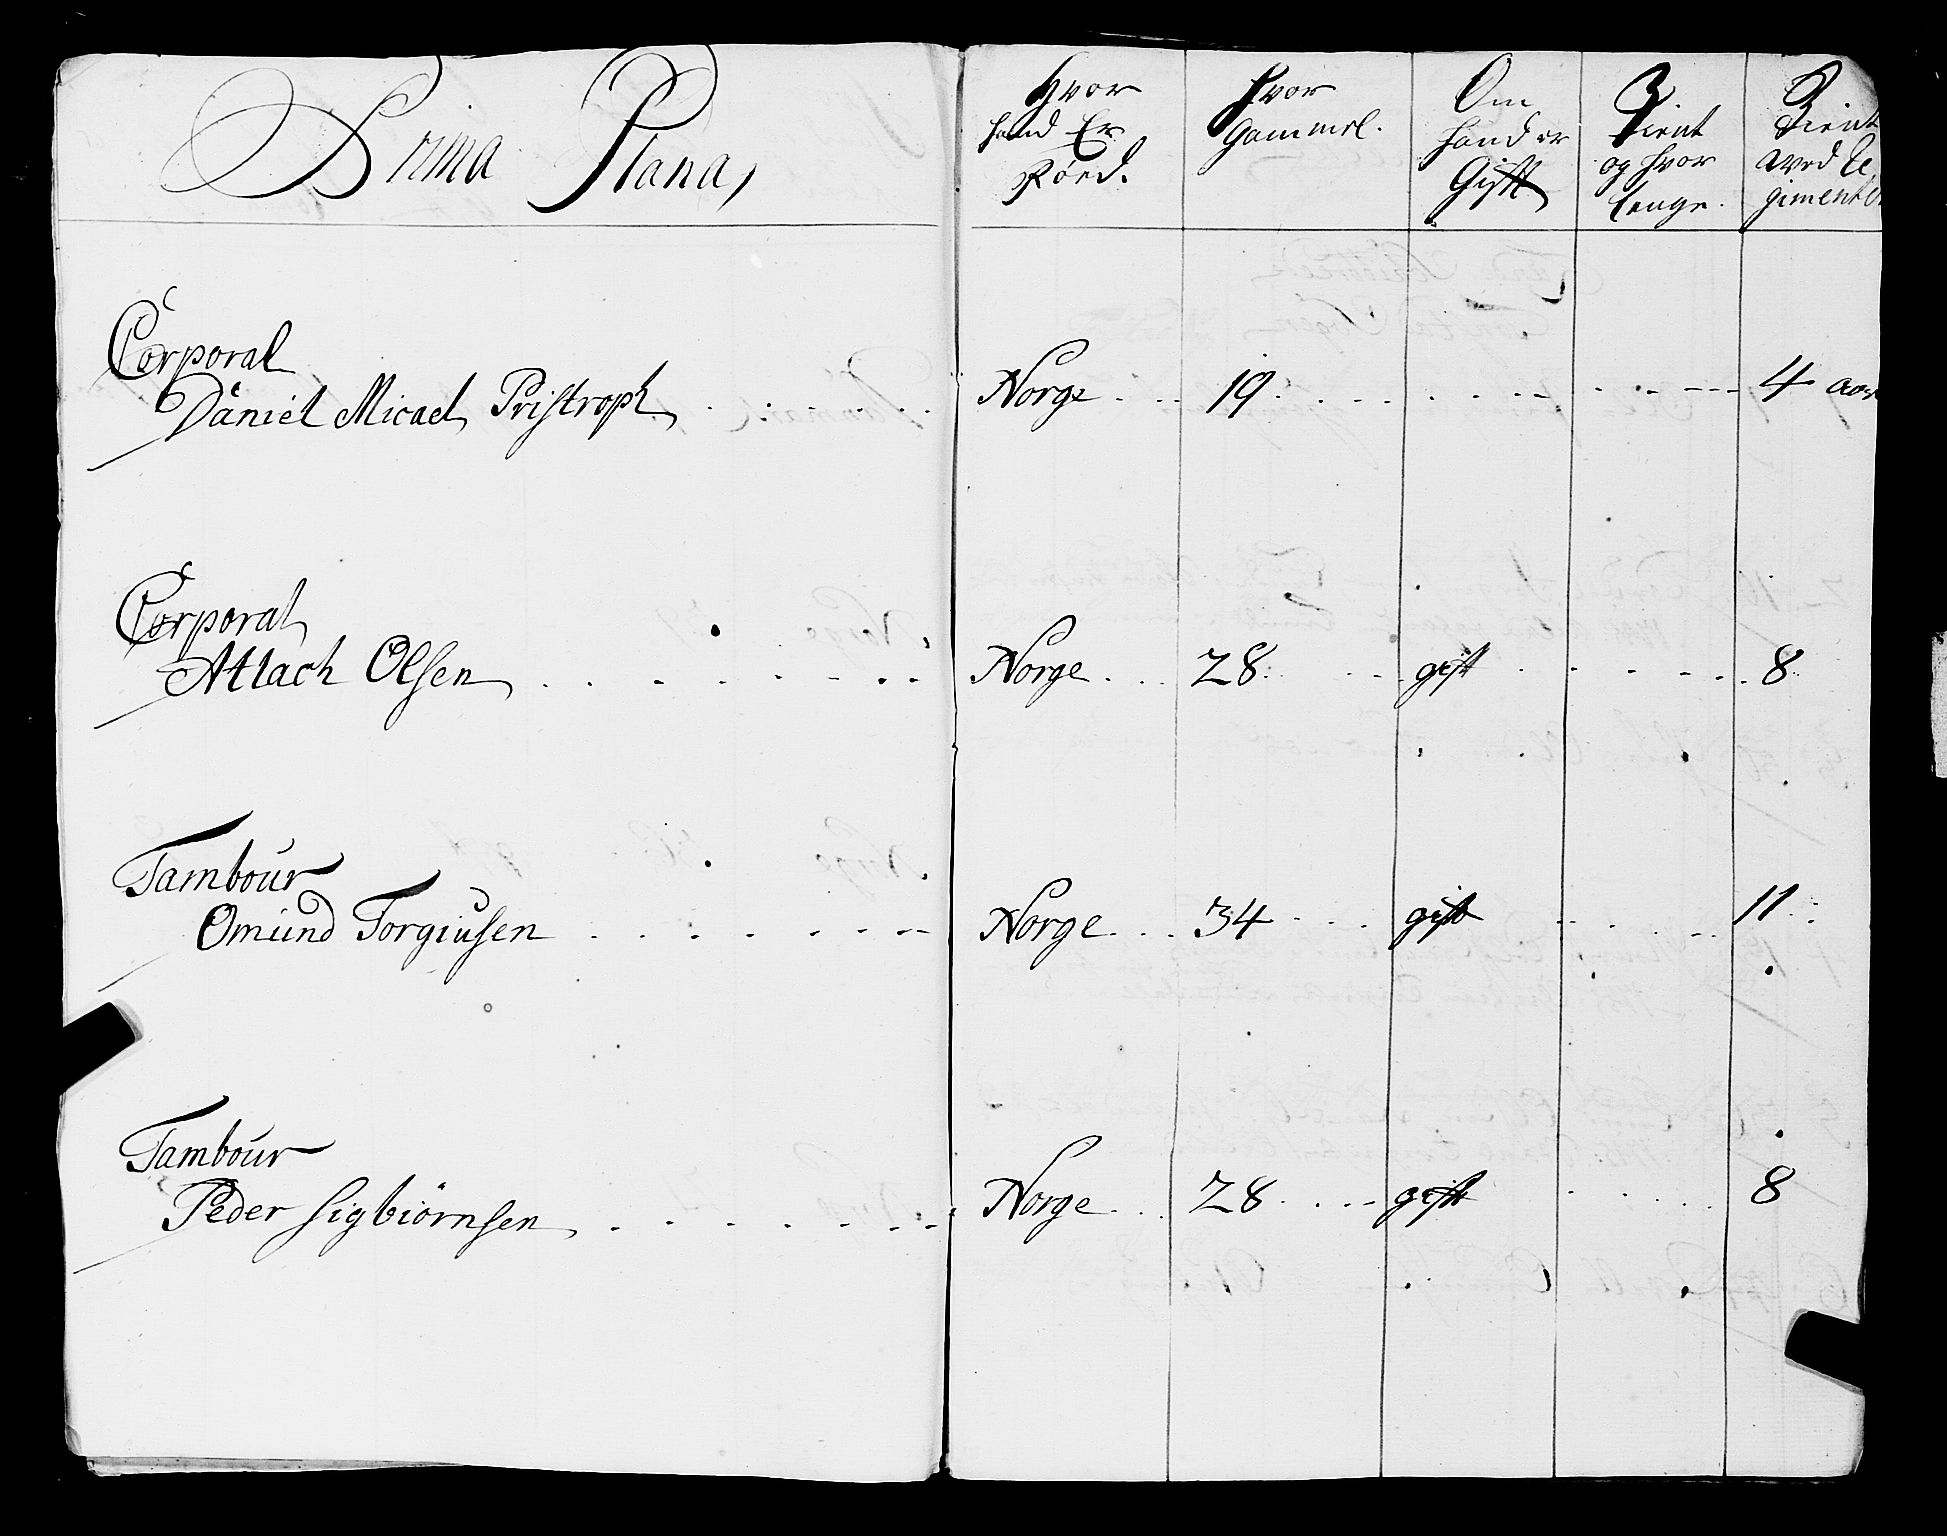 Prima Plana,
Hvor hand Er Fød.
Hvor Gammel.
Om hand er Gift
Tient og hvor lenge.
Tient ved Re,gimentet
Corporal
Daniel Micael Pristroph Norge 19 4 aar
Corporal
Atlach Olsen Norge 28 gift 8
Tambour
Omund Torgiusen Norge 34 gift 11
Tambour
Peder Sigbiørnsen Norge 28 gift 8